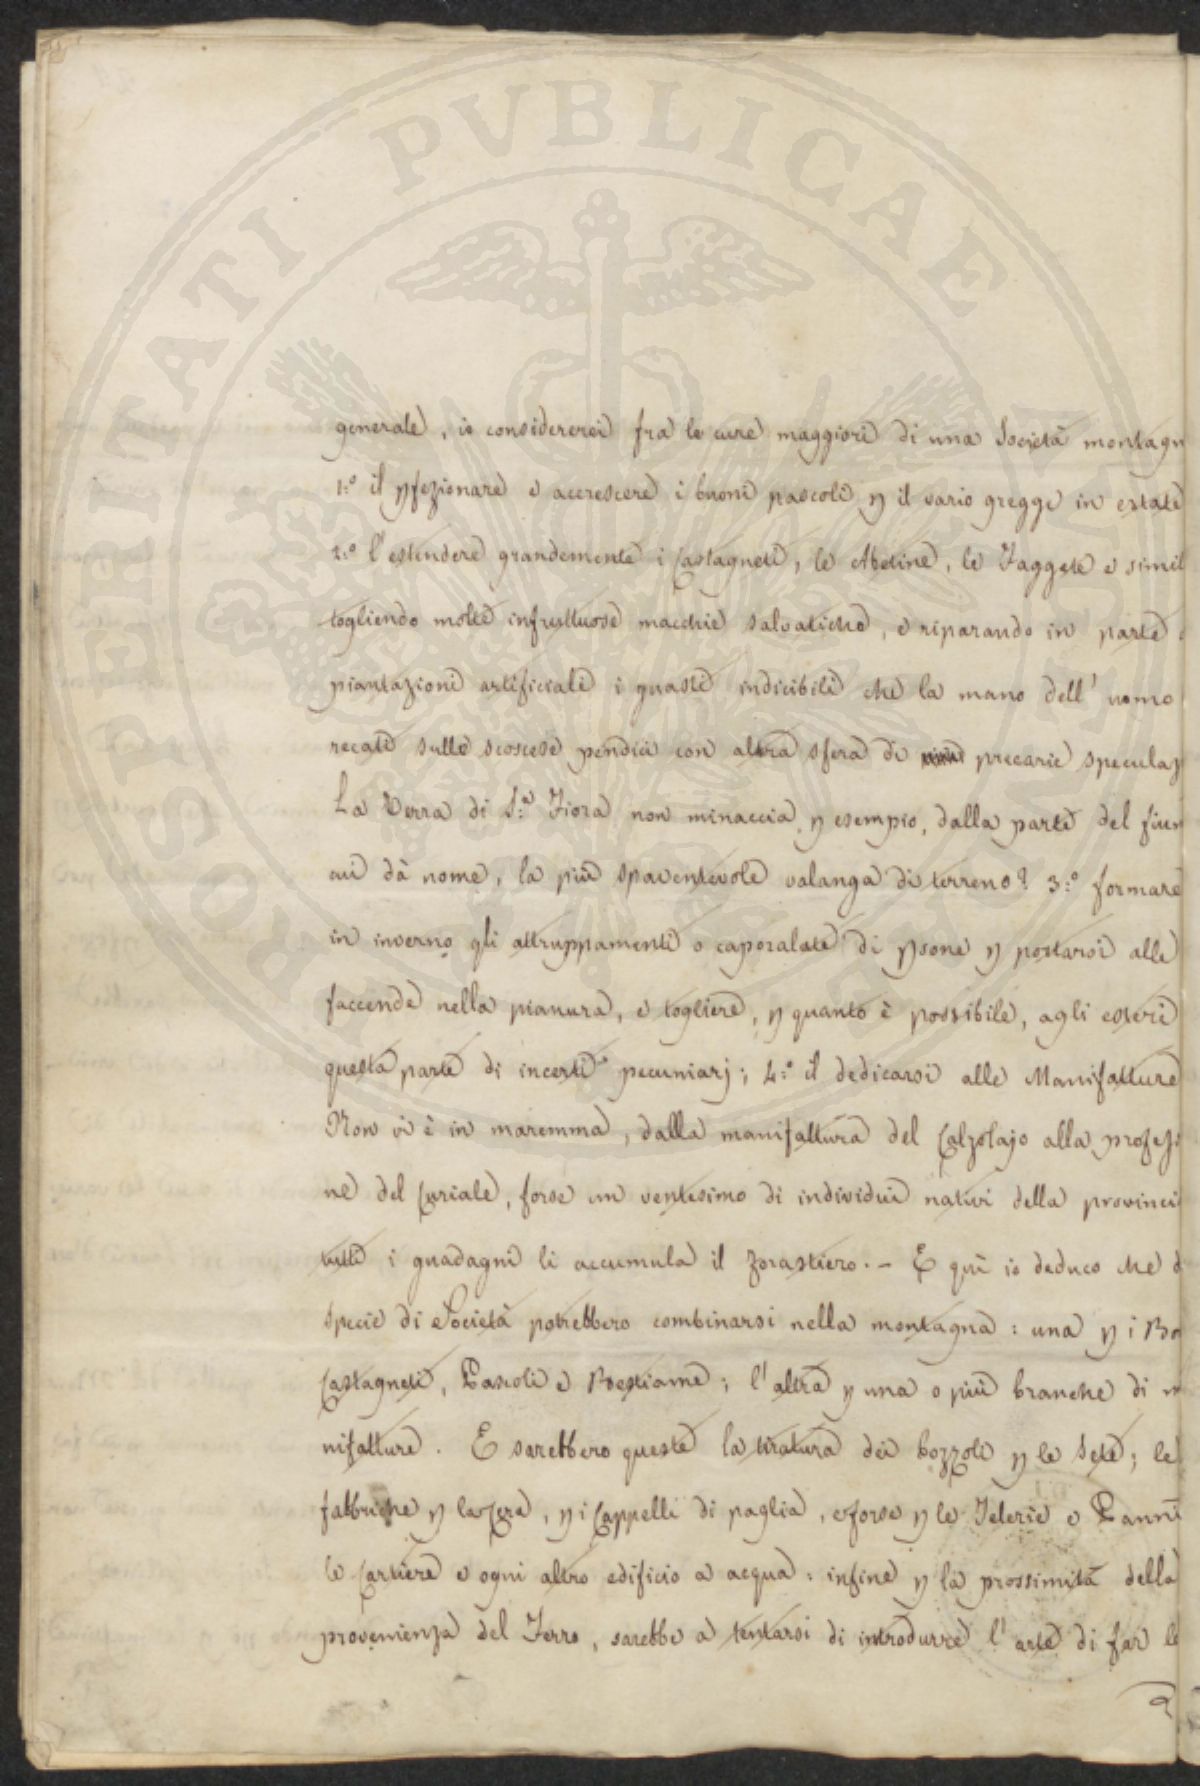 PROSPERITATI PVBLICAE AVGENDAE
generale, io considererei fra le cure maggiori di una Società montagn
1:º il pfezionare e accrescere i buoni pascoli p il vario gregge in estate
2:º l'estendere grandemente i Castagneti, le Abetine, le Faggete e simil
togliendo molte infruttuose macchie salvatiche, e riparando in parte
piantazioni artificiali i guasti indicibili che la mano dell'uomo
recati sulle scoscese pendici con altra sfera di precarie speculaz
La Terra di S:ª Fiora non minaccia, p esempio, dalla parte del fium
cui dà nome, la più spaventevole valanga di terreno? 3:º formare
in inverno gli attruppamenti o caporalati di psone p postarsi alle
faccende nella pianura, e togliere, p quanto è possibile, agli esteri
questa parte di incerti pecuniarj; 4:º il dedicarsi alle Manifatture
Non vi è in maremma, dalla manifattura del Calzolajo alla professi
ne del Curiale, forse un ventesimo di individui nativi della provinci
tutti i guadagni li accumula il forastiero. – E quì io deduco che d
specie di Società potrebbero combinarsi nella montagna: una p i Bo
Castagneti, Pascoli e Bestiame; l'altra p una o più branche di m
nifatture. E sarebbero queste la tiratura dei bozzoli p le Sete; le
fabbriche p la Cera, p i Cappelli di paglia, e forse p le Telerie e Panni
le Cartiere e ogni altro edificio a acqua: infine p la prossimità della
provenienza del Ferro, sarebbe a tentarsi di introdurre l'arte di far le